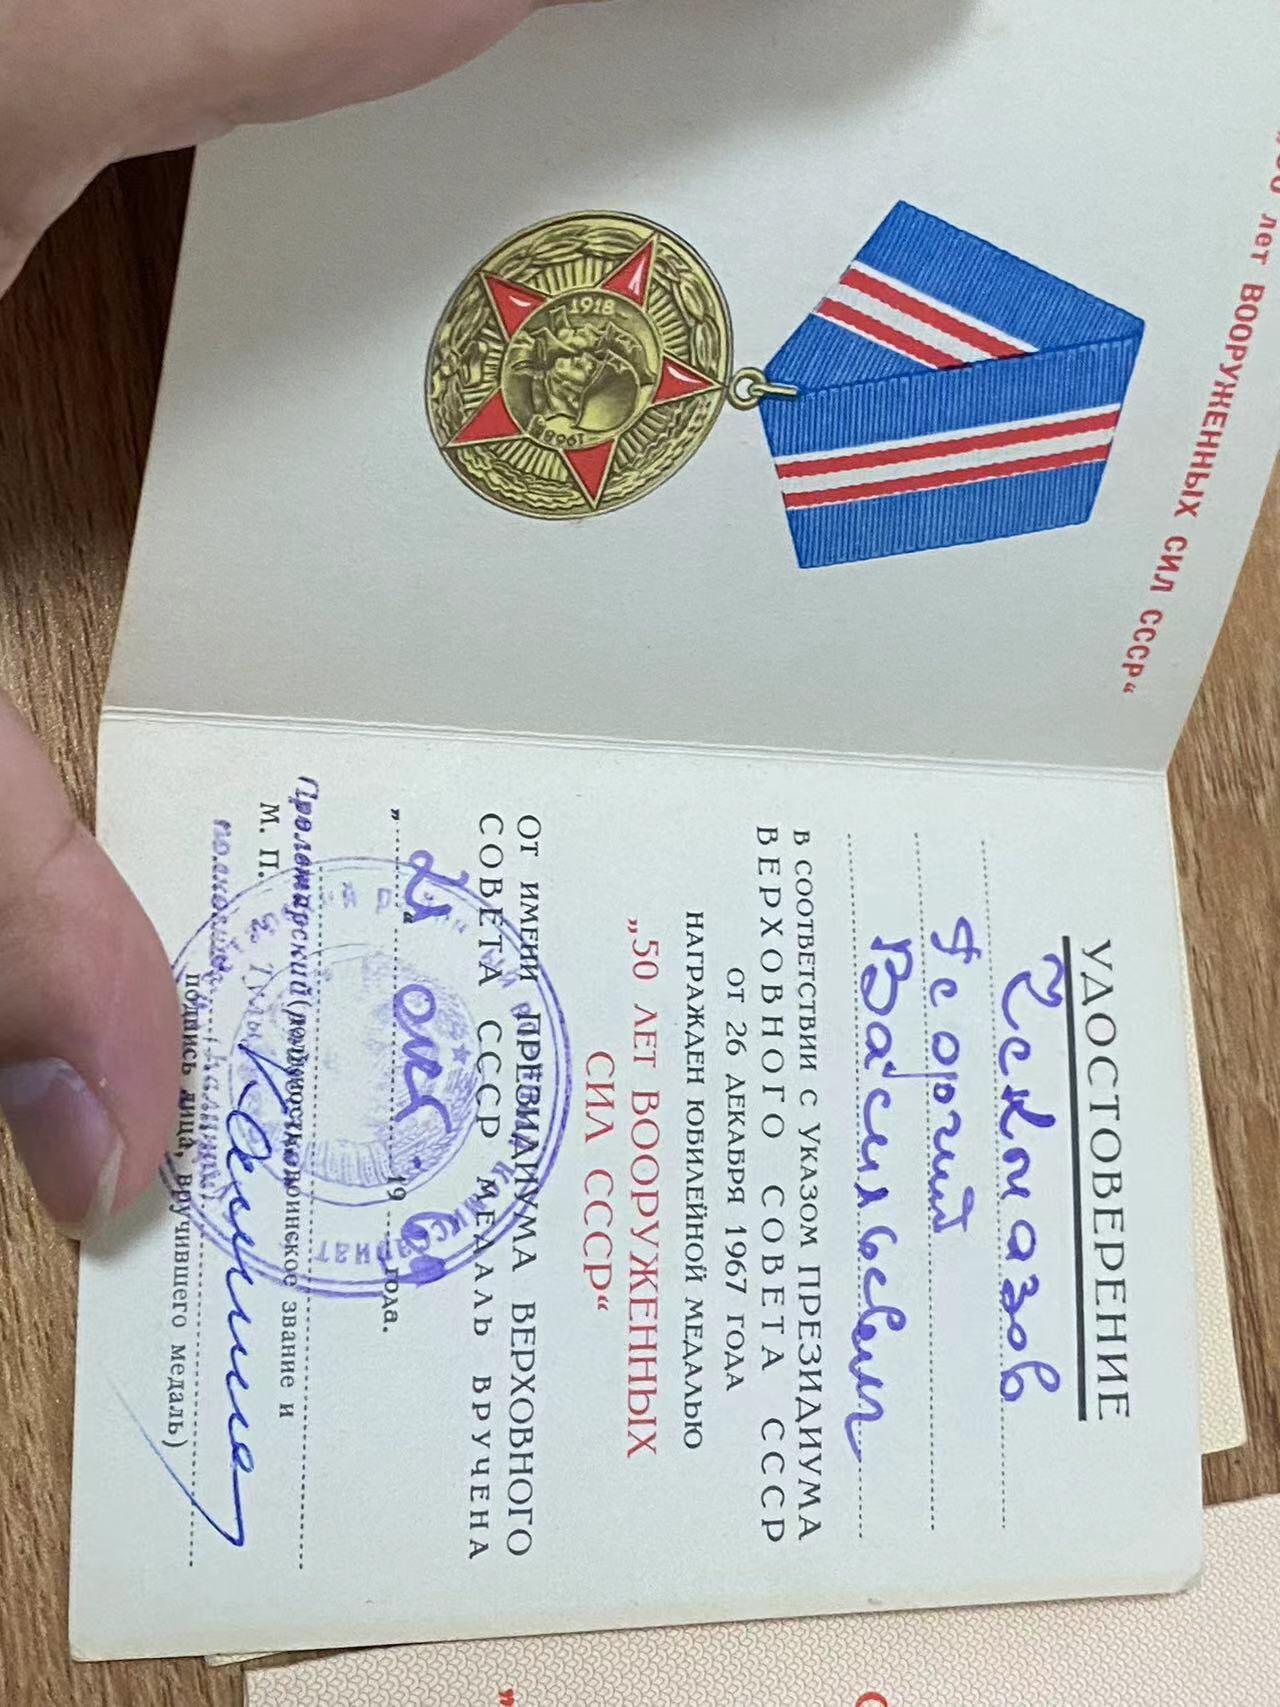 лет ВООРУЖЕННЫХ СИЛ СССР“
1918
1968
УДОСТОВЕРЕНИЕ
Георгий
Васильевич
В СООТВЕТСТВИИ С УКАЗОМ ПРЕЗИДИУМА
ВЕРХОВНОГО СОВЕТА СССР
ОТ 26 ДЕКАБРЯ 1967 ГОДА
НАГРАЖДЕН ЮБИЛЕЙНОЙ МЕДАЛЬЮ
„50 ЛЕТ ВООРУЖЕННЫХ
СИЛ СССР“
ОТ ИМЕНИ ПРЕЗИДИУМА ВЕРХОВНОГО
СОВЕТА СССР МЕДАЛЬ ВРУЧЕНА
„21“ окт. 1969 года.
Пролетарский
М. П. (должность, воинское звание и
полковник
подпись лица, вручившего медаль)